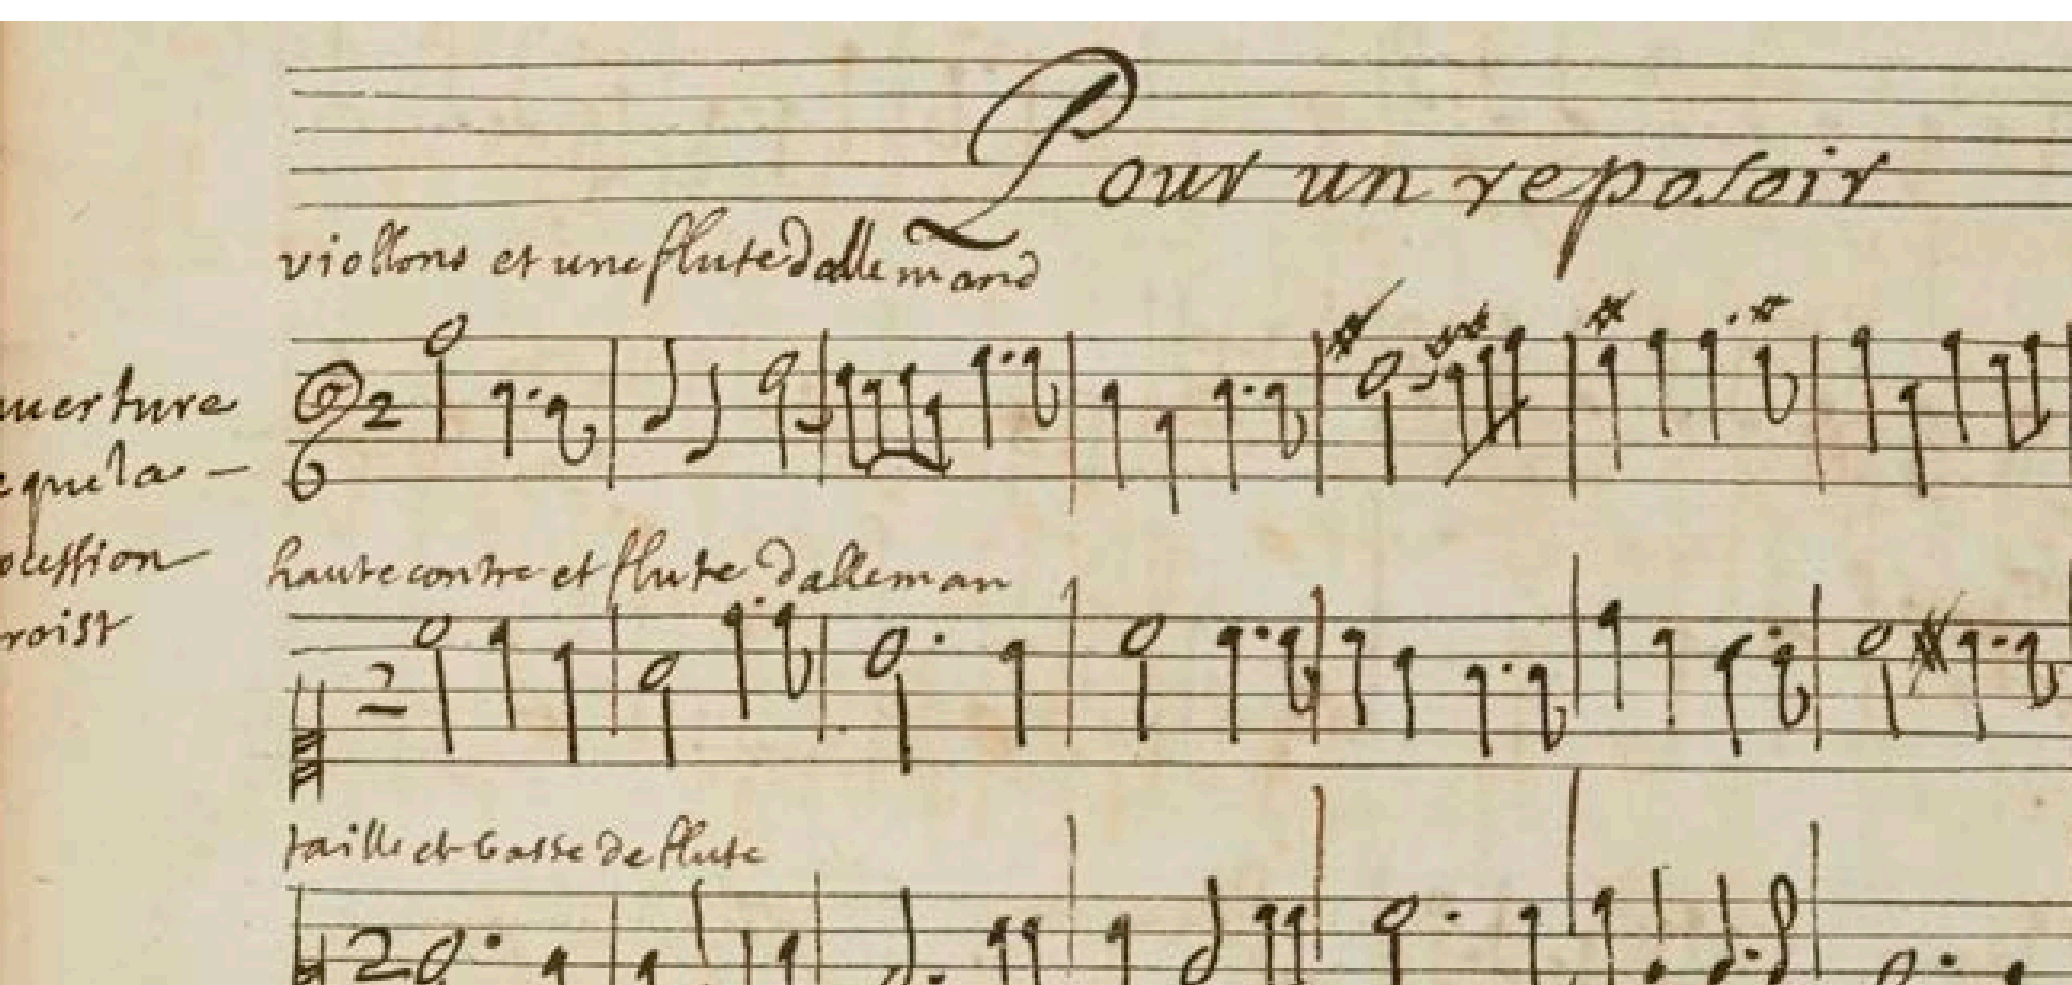 Pour un reposoir
viollons et une flute dallemand
uuerture
e que la -
ocession
roist
haute contre et flute dalleman
taille et basse de flute
2
2
2